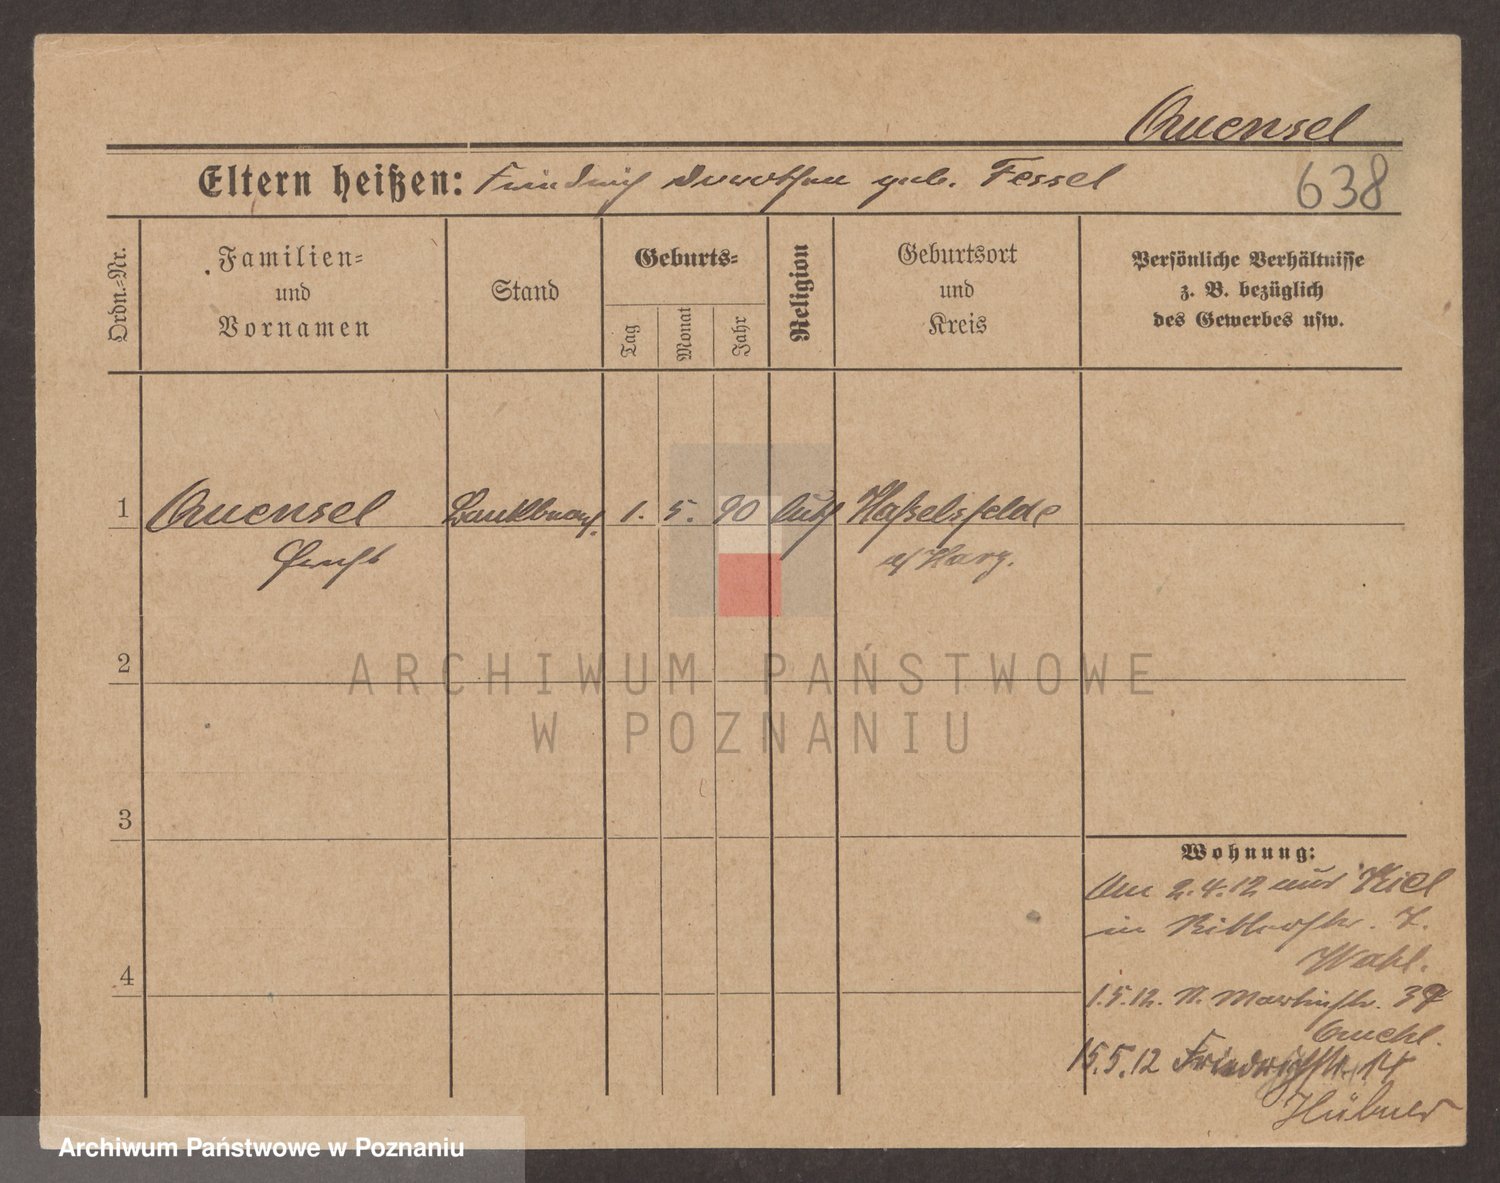 Quensel
Eltern heißen: Friedrich Dorothea geb. Fessel
638
Ordn.-Nr.
Familien-
und
Vornamen
Stand
Geburts-
Tag
Monat
Jahr
Religion
Geburtsort
und
Kreis
Persönliche Verhältnisse
z. B. bezüglich
des Gewerbes usw.
1 Quensel Bankbeamt. 1. 5. 90 luth Haßelsfelde
Ernst a/Harz.
2
ARCHIWUM PAŃSTWOWE
W POZNANIU
3
Wohnung:
Am 2.4.12 aus Kiel
in Ritterstr. 7.
Wahl.
4
1.5.12. St. Martinstr. 39
15.5.12 Friedrichstr. 14
Hübner
Archiwum Państwowe w Poznaniu